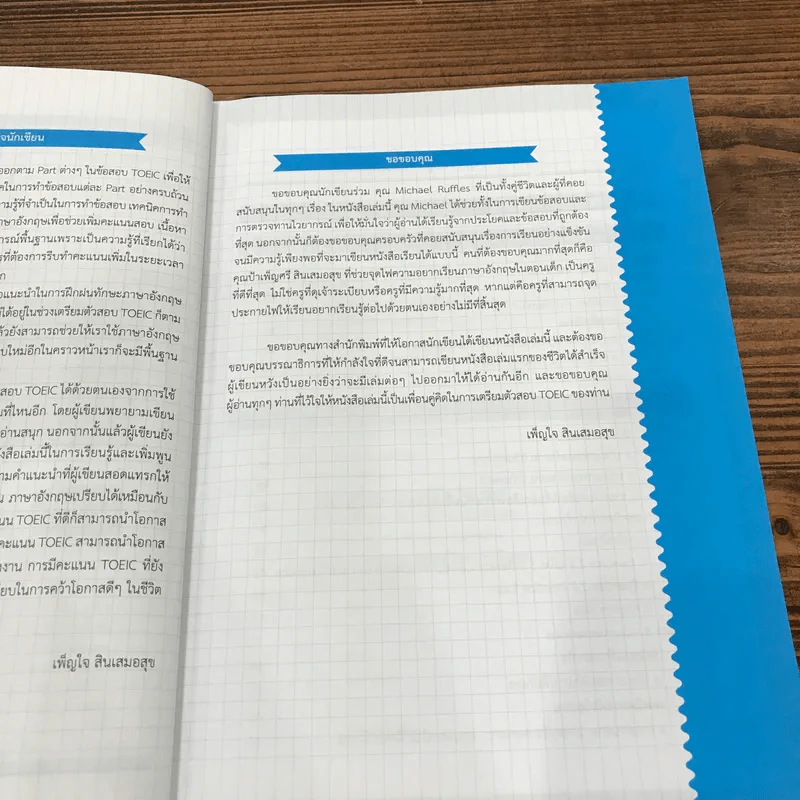 จนักเขียน
ออกตาม Part ต่างๆ ในข้อสอบ TOEIC เพื่อให้
คในการทำข้อสอบแต่ละ Part อย่างครบถ้วน
ามรู้ที่จำเป็นในการทำข้อสอบ เทคนิคการทำ
าษาอังกฤษเพื่อช่วยเพิ่มคะแนนสอบ เนื้อหา
ารณ์พื้นฐานเพราะเป็นความรู้ที่เรียกได้ว่า
รที่ต้องการรีบทำคะแนนเพิ่มในระยะเวลา
ก
อแนะนำในการฝึกฝนทักษะภาษาอังกฤษ
ม่ได้อยู่ในช่วงเตรียมตัวสอบ TOEIC ก็ตาม
ล้วยังสามารถช่วยให้เราใช้ภาษาอังกฤษ
บใหม่อีกในคราวหน้าเราก็จะมีพื้นฐาน
สอบ TOEIC ได้ด้วยตนเองจากการใช้
มที่ไหนอีก โดยผู้เขียนพยายามเขียน
อ่านสนุก นอกจากนั้นแล้วผู้เขียนยัง
ังสือเล่มนี้ในการเรียนรู้และเพิ่มพูน
ามคำแนะนำที่ผู้เขียนสอดแทรกให้
น ภาษาอังกฤษเปรียบได้เหมือนกับ
แนน TOEIC ที่ดีก็สามารถนำโอกาส
คะแนน TOEIC สามารถนำโอกาส
งงาน การมีคะแนน TOEIC ที่ยัง
ียบในการคว้าโอกาสดีๆ ในชีวิต
เพ็ญใจ สินเสมอสุข
ขอขอบคุณ
ขอขอบคุณนักเขียนร่วม คุณ Michael Ruffles ที่เป็นทั้งคู่ชีวิตและผู้ที่คอย
สนับสนุนในทุกๆ เรื่อง ในหนังสือเล่มนี้ คุณ Michael ได้ช่วยทั้งในการเขียนข้อสอบและ
การตรวจทานไวยากรณ์ เพื่อให้มั่นใจว่าผู้อ่านได้เรียนรู้จากประโยคและข้อสอบที่ถูกต้อง
ที่สุด นอกจากนั้นก็ต้องขอขอบคุณครอบครัวที่คอยสนับสนุนเรื่องการเรียนอย่างแข็งขัน
จนมีความรู้เพียงพอที่จะมาเขียนหนังสือเรียนได้แบบนี้ คนที่ต้องขอบคุณมากที่สุดก็คือ
คุณป้าเพ็ญศรี สินเสมอสุข ที่ช่วยจุดไฟความอยากเรียนภาษาอังกฤษในตอนเด็ก เป็นครู
ที่ดีที่สุด ไม่ใช่ครูที่ดุเจ้าระเบียบหรือครูที่มีความรู้มากที่สุด หากแต่คือครูที่สามารถจุด
ประกายไฟให้เรียนอยากเรียนรู้ต่อไปด้วยตนเองอย่างไม่มีที่สิ้นสุด
ขอขอบคุณทางสำนักพิมพ์ที่ให้โอกาสนักเขียนได้เขียนหนังสือเล่มนี้ และต้องขอ
ขอบคุณบรรณาธิการที่ให้กำลังใจที่ดีจนสามารถเขียนหนังสือเล่มแรกของชีวิตได้สำเร็จ
ผู้เขียนหวังเป็นอย่างยิ่งว่าจะมีเล่มต่อๆ ไปออกมาให้ได้อ่านกันอีก และขอขอบคุณ
ผู้อ่านทุกๆ ท่านที่ไว้ใจให้หนังสือเล่มนี้เป็นเพื่อนคู่คิดในการเตรียมตัวสอบ TOEIC ของท่าน
เพ็ญใจ สินเสมอสุข